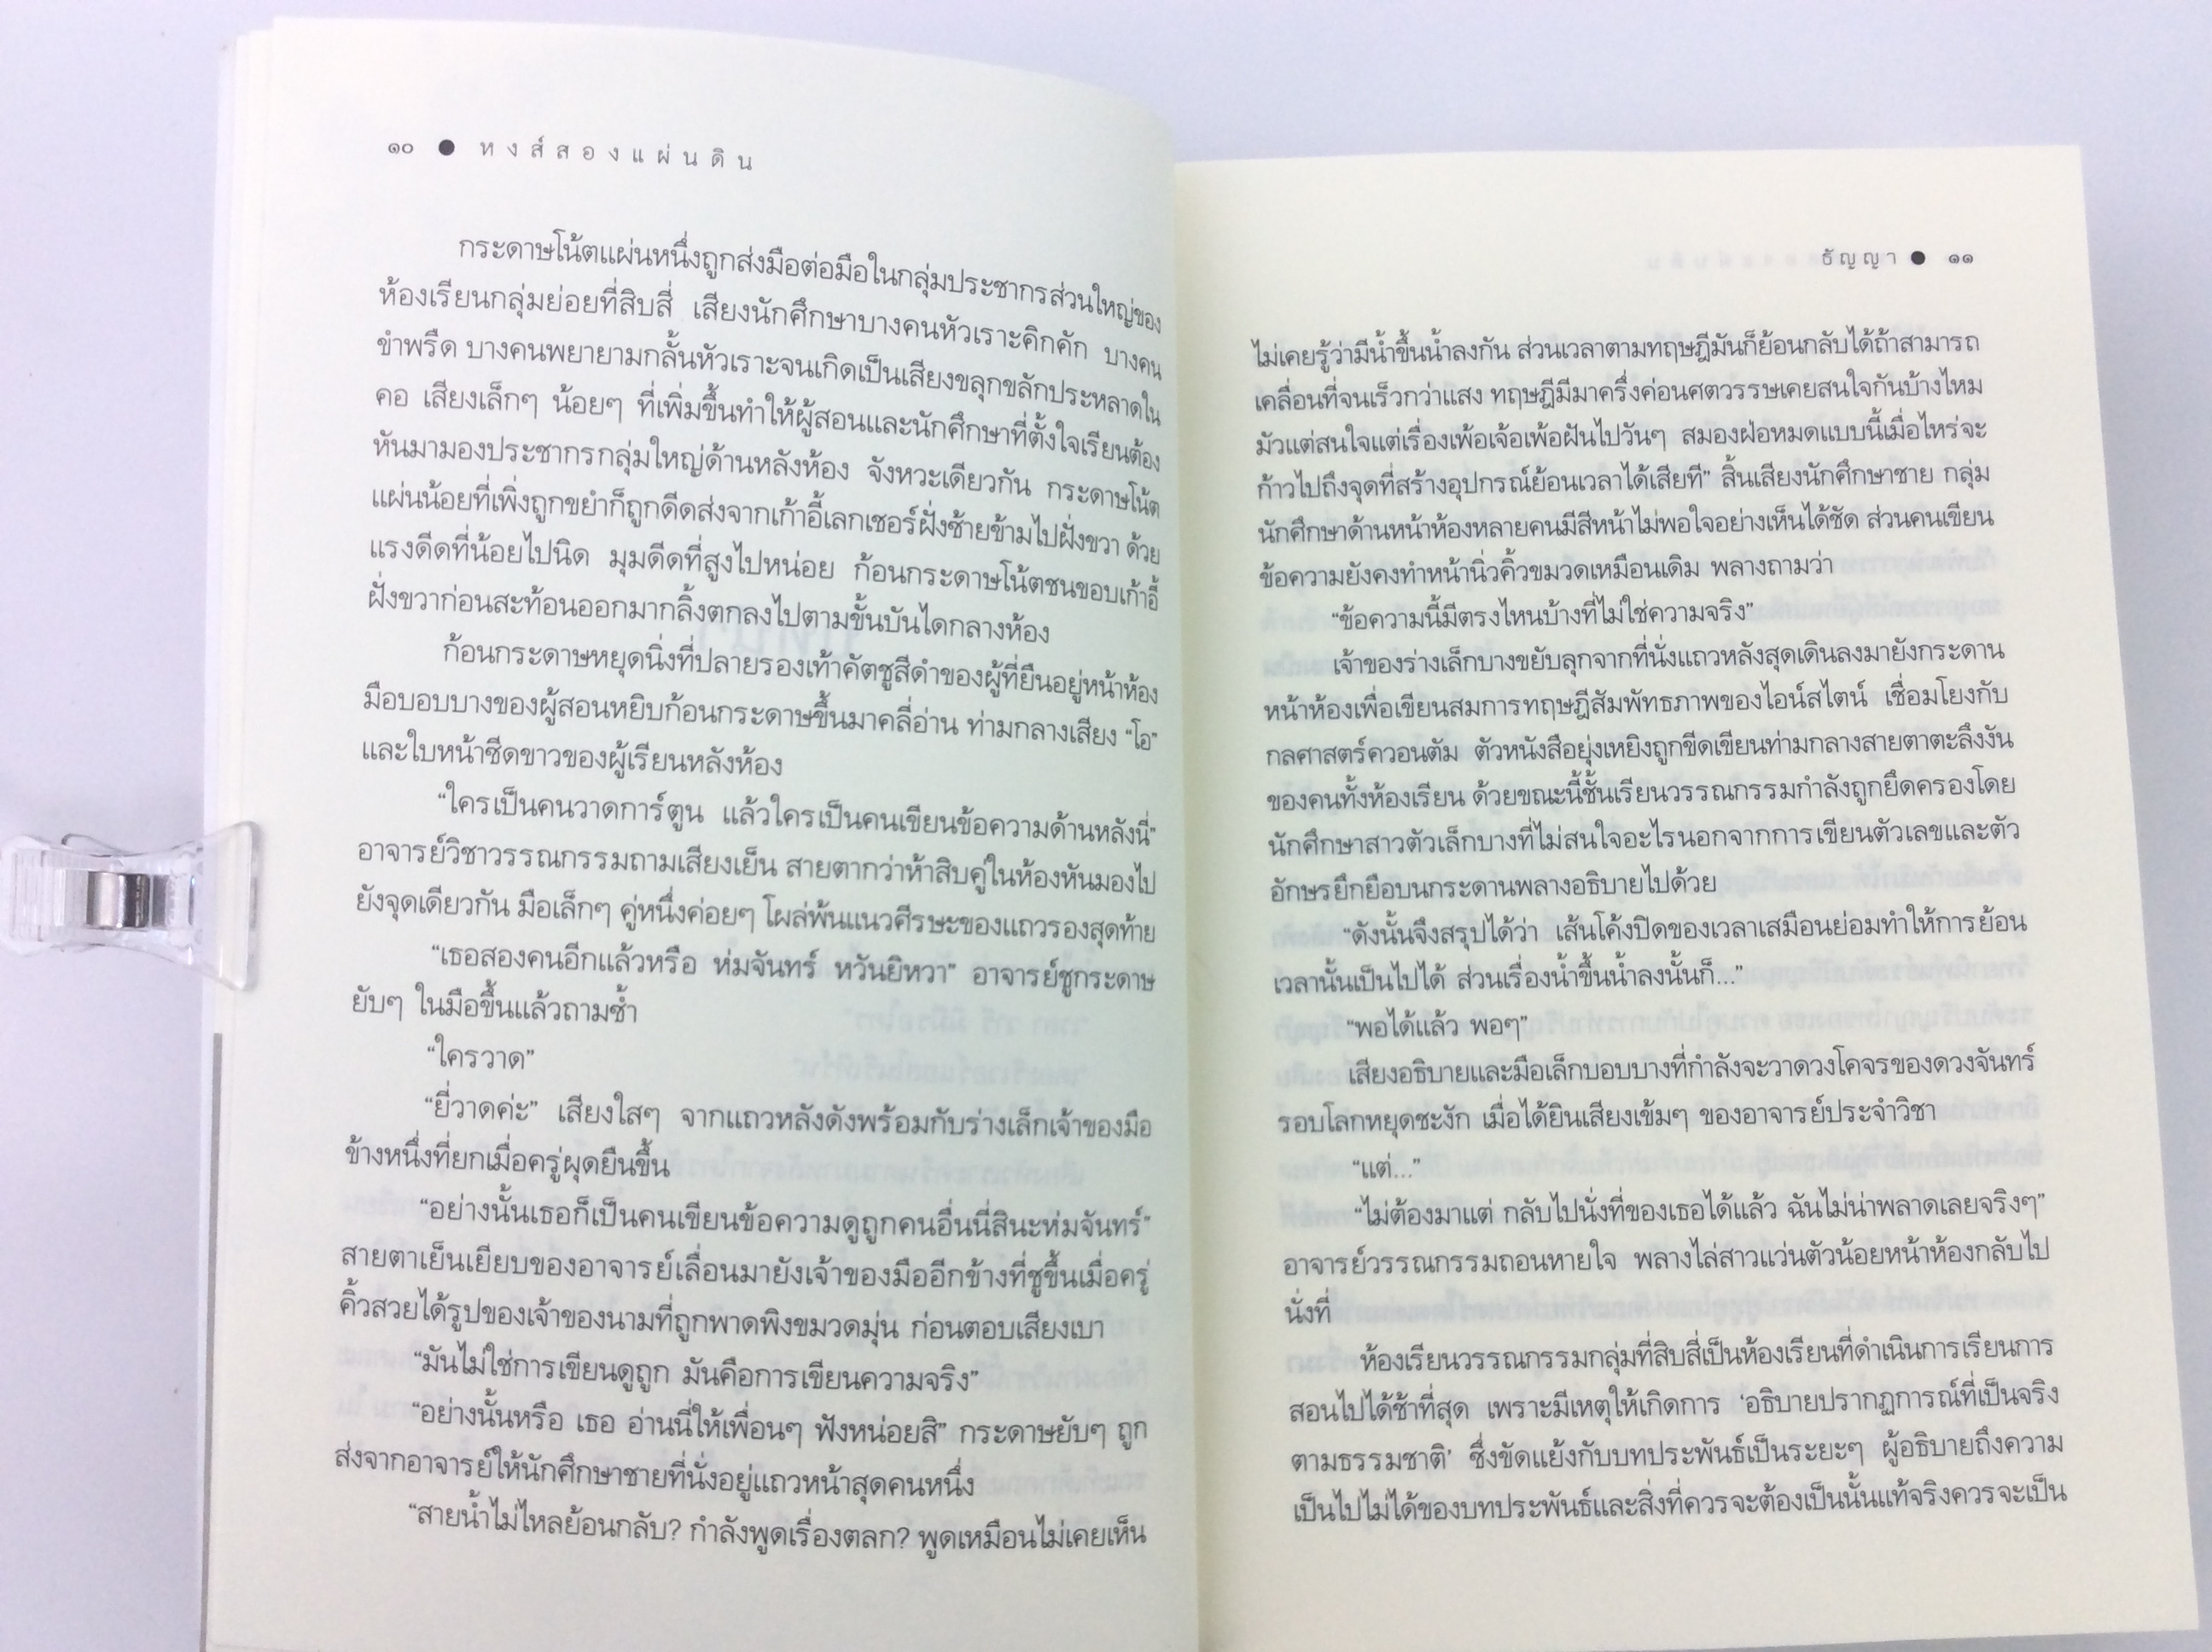 ๑๐ ● หงส์สองแผ่นดิน
กระดาษโน้ตแผ่นหนึ่งถูกส่งมือต่อมือในกลุ่มประชากรส่วนใหญ่ของ
ห้องเรียนกลุ่มย่อยที่สิบสี่ เสียงนักศึกษาบางคนหัวเราะคิกคัก บางคน
ขำพรืด บางคนพยายามกลั้นหัวเราะจนเกิดเป็นเสียงขลุกขลักประหลาดใน
คอ เสียงเล็กๆ น้อยๆ ที่เพิ่มขึ้นทำให้ผู้สอนและนักศึกษาที่ตั้งใจเรียนต้อง
หันมามองประชากรกลุ่มใหญ่ด้านหลังห้อง จังหวะเดียวกัน กระดาษโน้ต
แผ่นน้อยที่เพิ่งถูกขยำก็ถูกดีดส่งจากเก้าอี้เลกเชอร์ฝั่งซ้ายข้ามไปฝั่งขวา ด้วย
แรงดีดที่น้อยไปนิด มุมดีดที่สูงไปหน่อย ก้อนกระดาษโน้ตชนขอบเก้าอี้
ฝั่งขวาก่อนสะท้อนออกมากลิ้งตกลงไปตามขั้นบันไดกลางห้อง
ก้อนกระดาษหยุดนิ่งที่ปลายรองเท้าคัตชูสีดำของผู้ที่ยืนอยู่หน้าห้อง
มือบอบบางของผู้สอนหยิบก้อนกระดาษขึ้นมาคลี่อ่าน ท่ามกลางเสียง “โอ”
และใบหน้าซีดขาวของผู้เรียนหลังห้อง
“ใครเป็นคนวาดการ์ตูน แล้วใครเป็นคนเขียนข้อความด้านหลังนี่”
อาจารย์วิชาวรรณกรรมถามเสียงเย็น สายตากว่าห้าสิบคู่ในห้องหันมองไป
ยังจุดเดียวกัน มือเล็กๆ คู่หนึ่งค่อยๆ โผล่พ้นแนวศีรษะของแถวรองสุดท้าย
“เธอสองคนอีกแล้วหรือ ห่มจันทร์ หวันยิหวา” อาจารย์ชูกระดาษ
ยับๆ ในมือขึ้นแล้วถามซ้ำ
“ใครวาด”
“ยี่วาดค่ะ” เสียงใสๆ จากแถวหลังดังพร้อมกับร่างเล็กเจ้าของมือ
ข้างหนึ่งที่ยกเมื่อครู่ผุดยืนขึ้น
“อย่างนั้นเธอก็เป็นคนเขียนข้อความดูถูกคนอื่นนี่สินะห่มจันทร์”
สายตาเย็นเยียบของอาจารย์เลื่อนมายังเจ้าของมืออีกข้างที่ชูขึ้นเมื่อครู่
คิ้วสวยได้รูปของเจ้าของนามที่ถูกพาดพิงขมวดมุ่น ก่อนตอบเสียงเบา
“มันไม่ใช่การเขียนดูถูก มันคือการเขียนความจริง”
“อย่างนั้นหรือ เธอ อ่านนี่ให้เพื่อนๆ ฟังหน่อยสิ” กระดาษยับๆ ถูก
ส่งจากอาจารย์ให้นักศึกษาชายที่นั่งอยู่แถวหน้าสุดคนหนึ่ง
“สายน้ำไม่ไหลย้อนกลับ? กำลังพูดเรื่องตลก? พูดเหมือนไม่เคยเห็น
ธัญญา ● ๑๑
ไม่เคยรู้ว่ามีน้ำขึ้นน้ำลงกัน ส่วนเวลาตามทฤษฎีมันก็ย้อนกลับได้ถ้าสามารถ
เคลื่อนที่จนเร็วกว่าแสง ทฤษฎีมีมาครึ่งค่อนศตวรรษเคยสนใจกันบ้างไหม
มัวแต่สนใจแต่เรื่องเพ้อเจ้อเพ้อฝันไปวันๆ สมองฝ่อหมดแบบนี้เมื่อไหร่จะ
ก้าวไปถึงจุดที่สร้างอุปกรณ์ย้อนเวลาได้เสียที” สิ้นเสียงนักศึกษาชาย กลุ่ม
นักศึกษาด้านหน้าห้องหลายคนมีสีหน้าไม่พอใจอย่างเห็นได้ชัด ส่วนคนเขียน
ข้อความยังคงทำหน้านิ่วคิ้วขมวดเหมือนเดิม พลางถามว่า
“ข้อความนี้มีตรงไหนบ้างที่ไม่ใช่ความจริง”
เจ้าของร่างเล็กบางขยับลุกจากที่นั่งแถวหลังสุดเดินลงมายังกระดาน
หน้าห้องเพื่อเขียนสมการทฤษฎีสัมพัทธภาพของไอน์สไตน์ เชื่อมโยงกับ
กลศาสตร์ควอนตัม ตัวหนังสือยุ่งเหยิงถูกขีดเขียนท่ามกลางสายตาตะลึงงัน
ของคนทั้งห้องเรียน ด้วยขณะนี้ชั้นเรียนวรรณกรรมกำลังถูกยึดครองโดย
นักศึกษาสาวตัวเล็กบางที่ไม่สนใจอะไรนอกจากการเขียนตัวเลขและตัว
อักษรยึกยือบนกระดานพลางอธิบายไปด้วย
“ดังนั้นจึงสรุปได้ว่า เส้นโค้งปิดของเวลาเสมือนย่อมทำให้การย้อน
เวลานั้นเป็นไปได้ ส่วนเรื่องน้ำขึ้นน้ำลงนั้นก็...”
“พอได้แล้ว พอๆ”
เสียงอธิบายและมือเล็กบอบบางที่กำลังจะวาดวงโคจรของดวงจันทร์
รอบโลกหยุดชะงัก เมื่อได้ยินเสียงเข้มๆ ของอาจารย์ประจำวิชา
“แต่...”
“ไม่ต้องมาแต่ กลับไปนั่งที่ของเธอได้แล้ว ฉันไม่น่าพลาดเลยจริงๆ”
อาจารย์วรรณกรรมถอนหายใจ พลางไล่สาวแว่นตัวน้อยหน้าห้องกลับไป
นั่งที่
ห้องเรียนวรรณกรรมกลุ่มที่สิบสี่เป็นห้องเรียนที่ดำเนินการเรียนการ
สอนไปได้ช้าที่สุด เพราะมีเหตุให้เกิดการ ‘อธิบายปรากฏการณ์ที่เป็นจริง
ตามธรรมชาติ’ ซึ่งขัดแย้งกับบทประพันธ์เป็นระยะๆ ผู้อธิบายถึงความ
เป็นไปไม่ได้ของบทประพันธ์และสิ่งที่ควรจะต้องเป็นนั้นแท้จริงควรจะเป็น